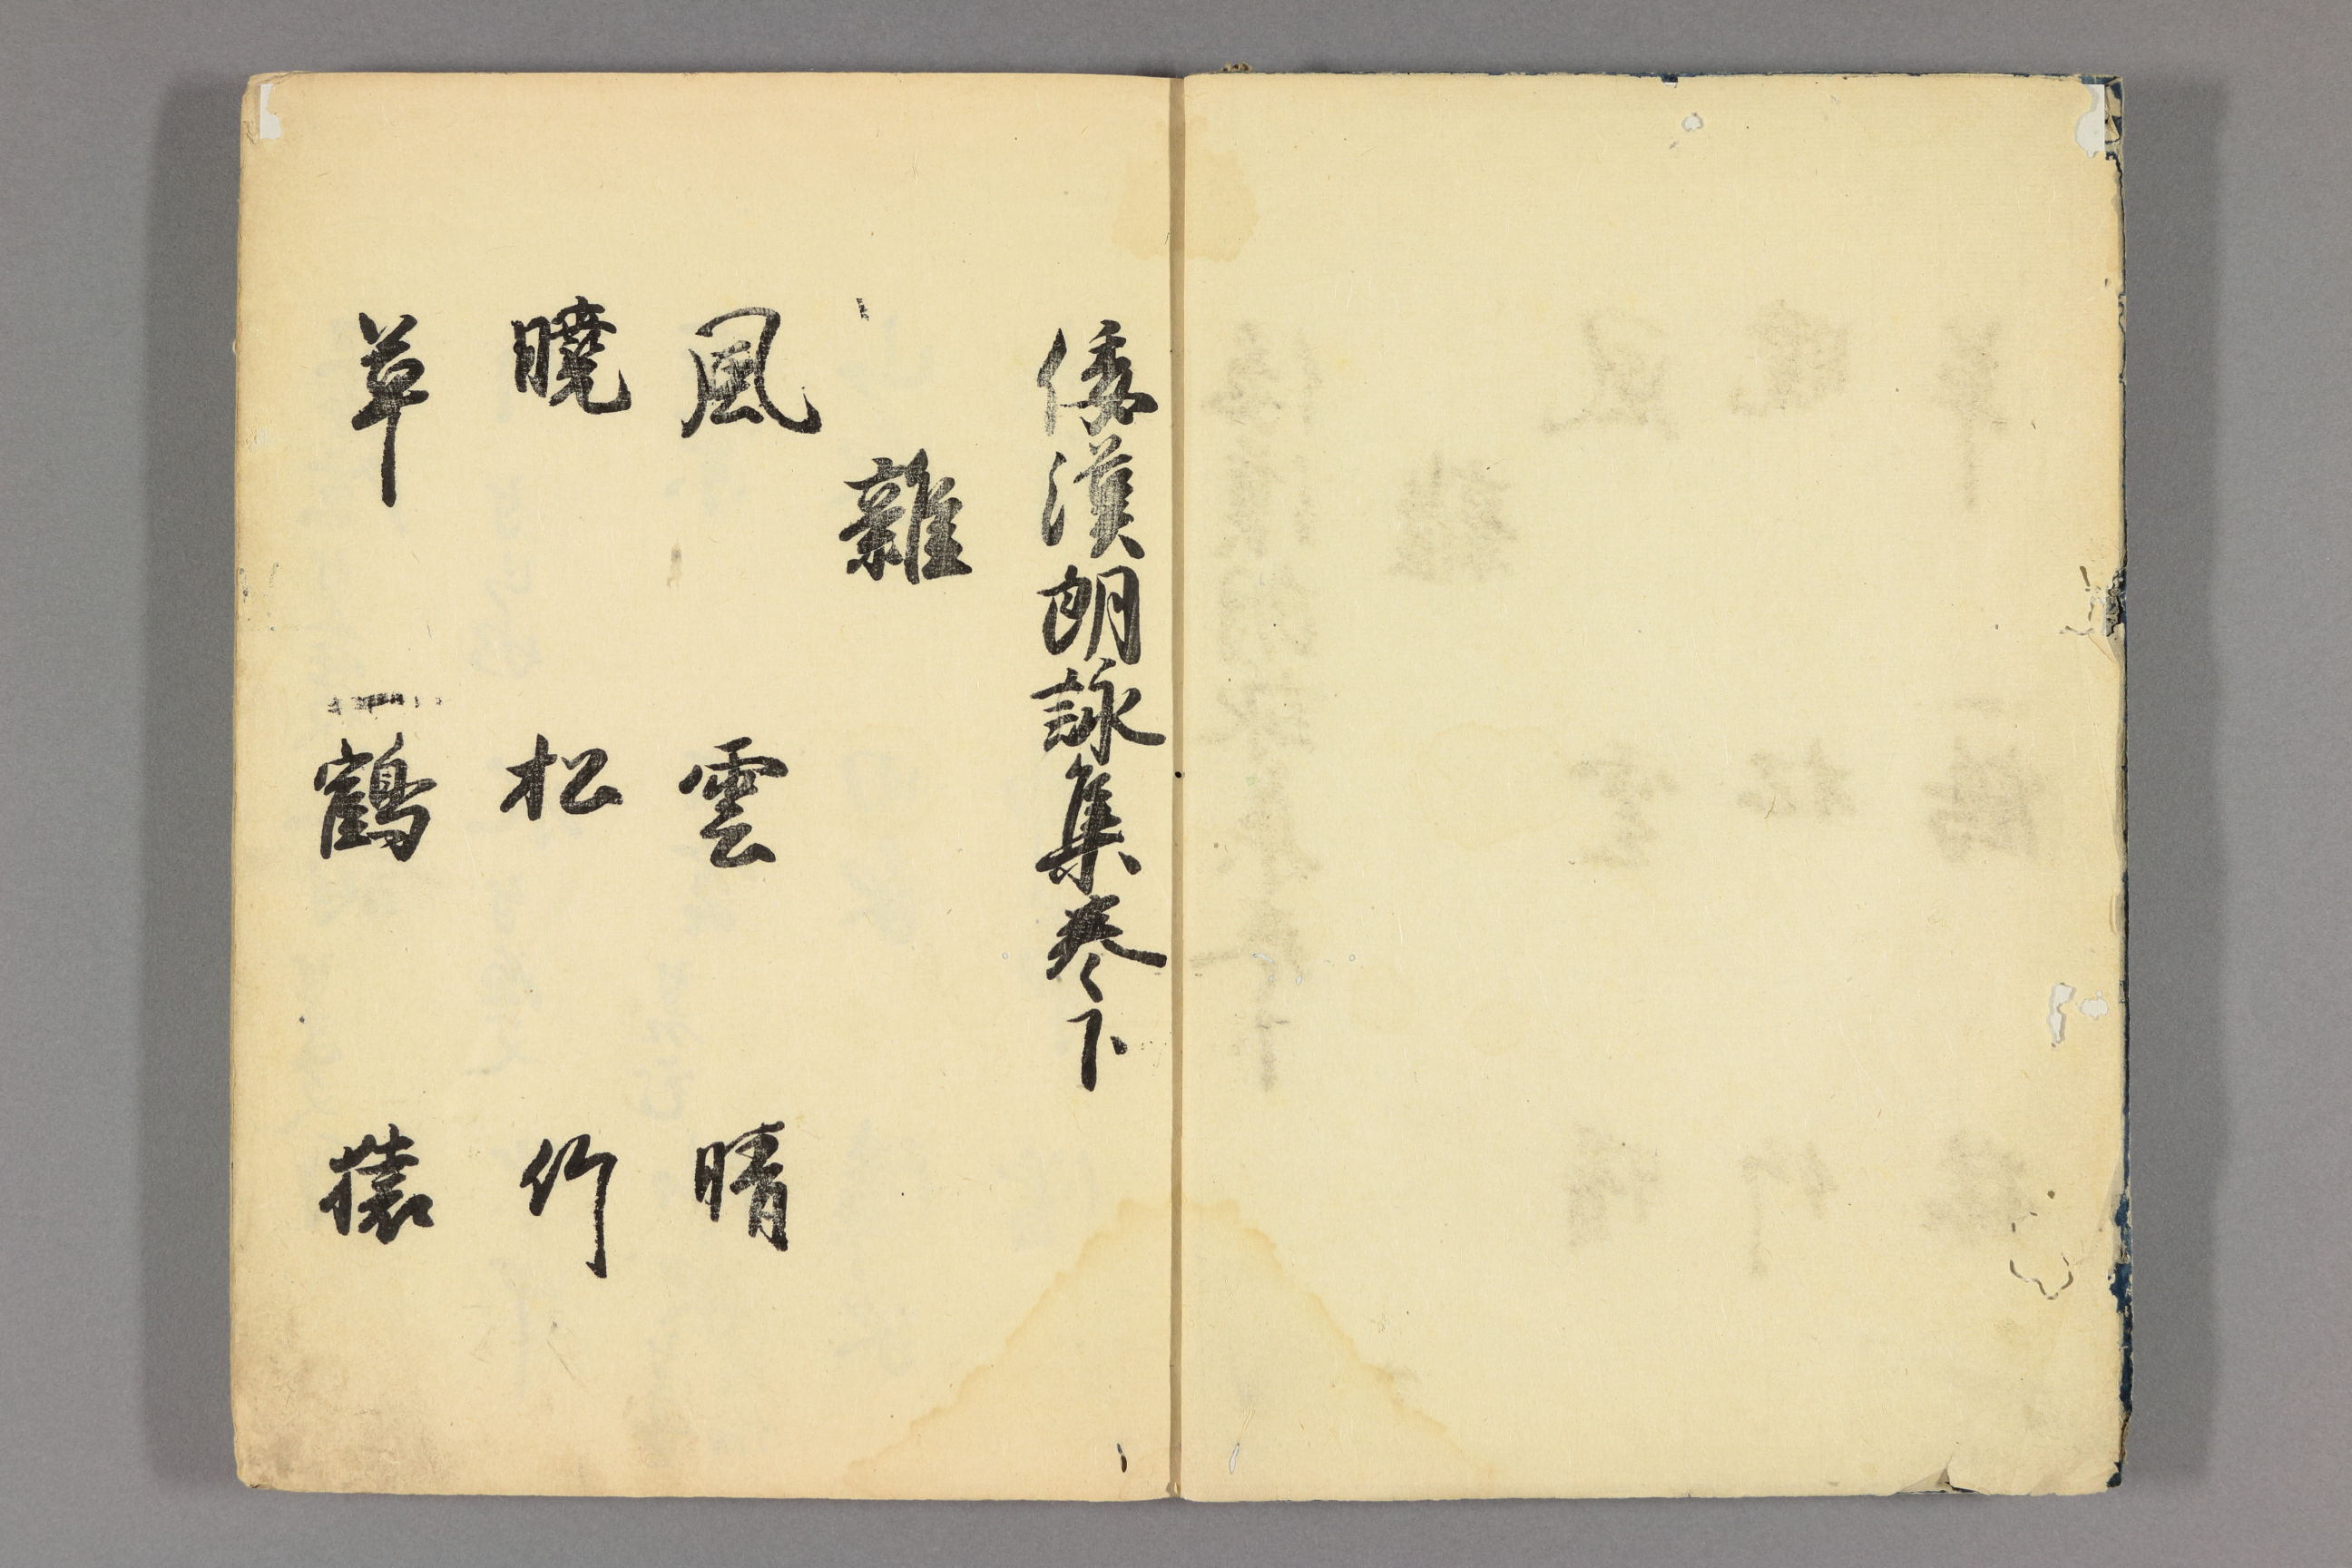 倭漢朗詠集巻下
雜
風 雲 晴
曉 松 竹
草 鶴 猿